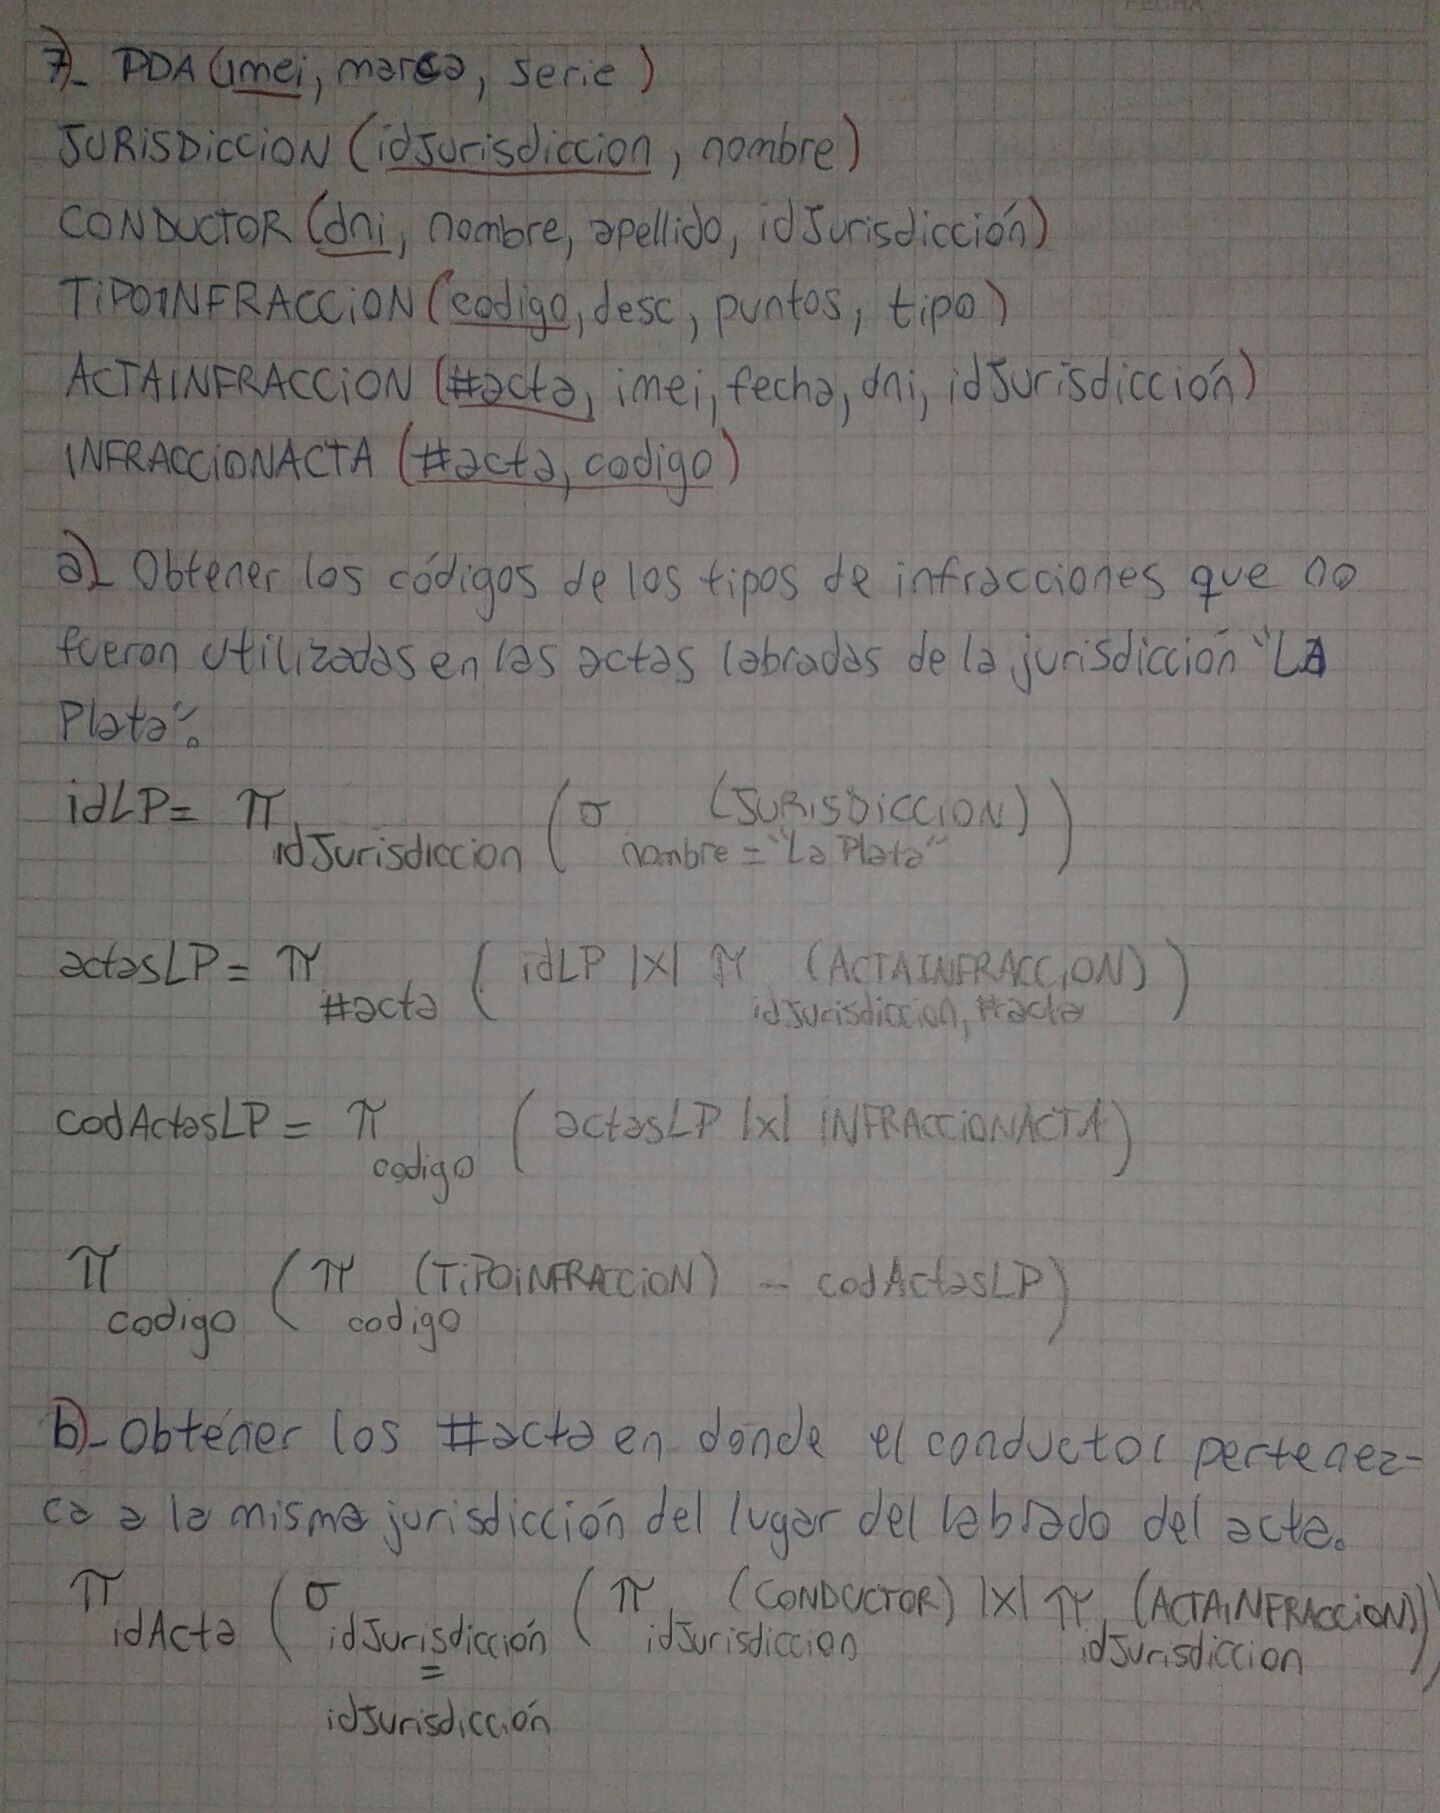 7)- PDA (imei, marca, serie)
JURISDICCION (idJurisdiccion, nombre)
CONDUCTOR (dni, nombre, apellido, idJurisdicción)
TIPOINFRACCION (codigo, desc, puntos, tipo)
ACTAINFRACCION (#acta, imei, fecha, dni, idJurisdicción)
INFRACCIONACTA (#acta, codigo)
a)- Obtener los códigos de los tipos de infracciones que no
fueron utilizadas en las actas labradas de la jurisdicción "La
Plata".
idLP= π idJurisdiccion (σ nombre = "La Plata" (JURISDICCION))
actasLP= π #acta (idLP |X| π idJurisdiccion, #acta (ACTAINFRACCION))
codActasLP = π codigo (actasLP |x| INFRACCIONACTA)
π codigo (π codigo (TIPOINFRACCION) - codActasLP)
b)- Obtener los #acta en donde el conductor pertenez-
ca a la misma jurisdicción del lugar del labrado del acta.
π idActa (σ idJurisdicción = idJurisdicción (π idJurisdiccion (CONDUCTOR) |X| π idJurisdiccion (ACTAINFRACCION)))